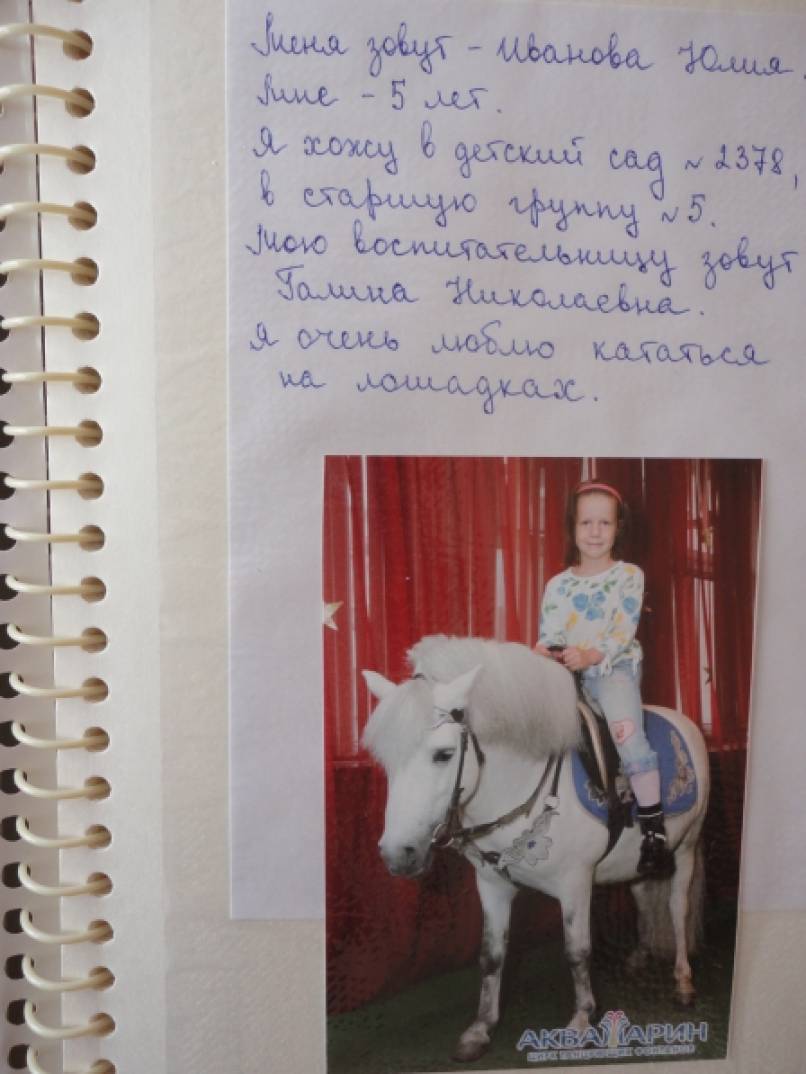 Меня зовут - Иванова Юлия.
Мне - 5 лет.
Я хожу в детский сад № 2378,
в старшую группу № 5.
Мою воспитательницу зовут
Галина Николаевна.
Я очень люблю кататься
на лошадках.
АКВАМАРИН
ЦИРК ТАНЦУЮЩИХ ФОНТАНОВ